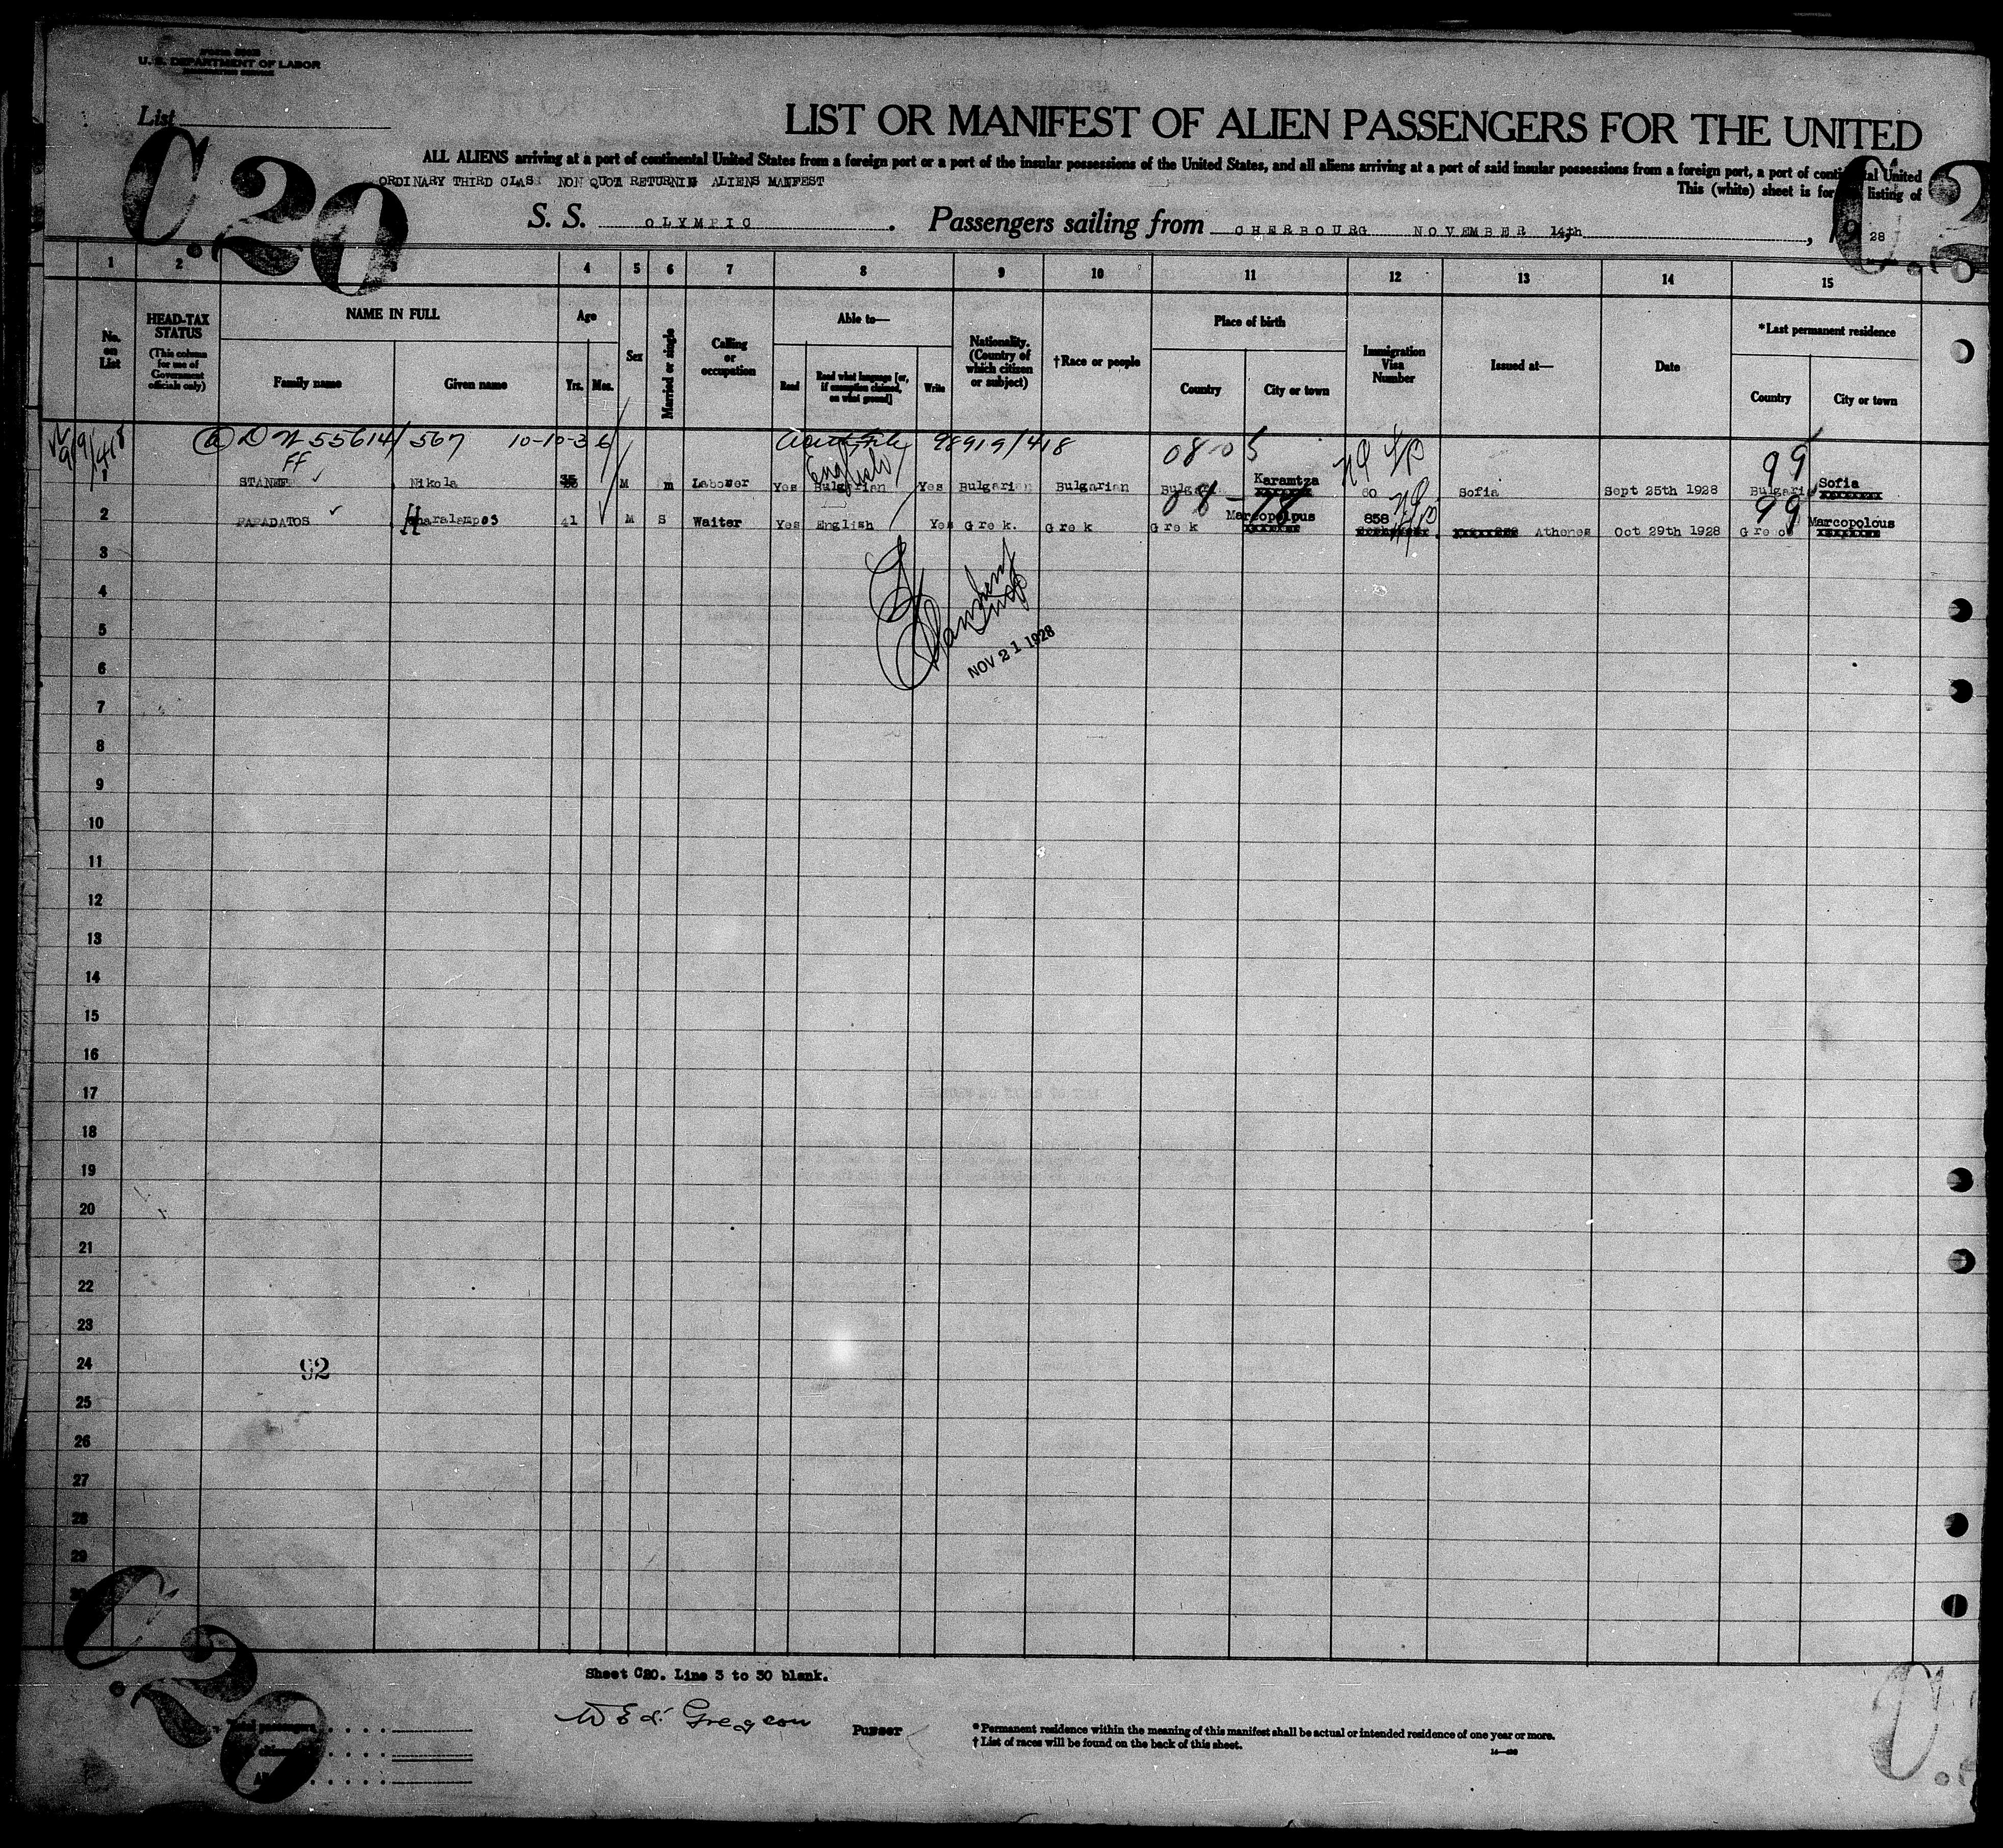 U. S. DEPARTMENT OF LABOR
List
C.20
LIST OR MANIFEST OF ALIEN PASSENGERS FOR THE UNITED
ALL ALIENS arriving at a port of continental United States from a foreign port or a port of the insular possessions of the United States, and all aliens arriving at a port of said insular possessions from a foreign port, a port of United
ORDINARY THIRD CLAS NON QUOT RETURNIN ALIENS MANFEST
This (white) sheet is for listing of
S. S. OLYMPIC. Passengers sailing from CHERBOURG NOVEMBER 14th, 1928
1 2 3 4 5 6 7 8 9 10 11 12 13 14 15
No. on List
HEAD-TAX STATUS (This column for use of Government officials only)
NAME IN FULL
Family name
Given name
Age
Yrs. Mos.
Sex
Married or single
Calling or occupation
Able to—
Read
Read what language [or, if exemption claimed, on what ground]
Write
Nationality. (Country of which citizen or subject)
†Race or people
Place of birth
Country
City or town
Immigration Visa Number
Issued at—
Date
*Last permanent residence
Country
City or town
55614/567 10-10-36 98919/418 08-05
FF English 99
1 STANEF Nikola M m Laborer Yes Bulgarian Yes Bulgaria Bulgarian Bulgar Karamtza 60 Sofia Sept 25th 1928 Bulgari Sofia
08-78 99
2 PAPADATOS Haralampos 41 M S Waiter Yes English Yes Grek. Grek Grek Marcopolpus 858 Athenes Oct 29th 1928 Grec Marcopolous
NOV 21 1928
3
4
5
6
7
8
9
10
11
12
13
14
15
16
17
18
19
20
21
22
23
24 92
25
26
27
28
29
30
C.20
Sheet C20. Line 3 to 30 blank.
Purser
* Permanent residence within the meaning of this manifest shall be actual or intended residence of one year or more.
† List of races will be found on the back of this sheet.